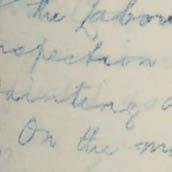 the Labou
nspection
ainting
On the m